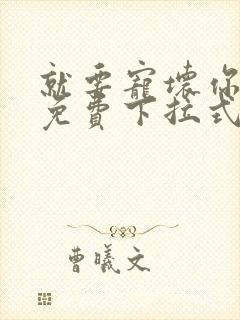 就要寵壞你
免費下拉式
曹曦文